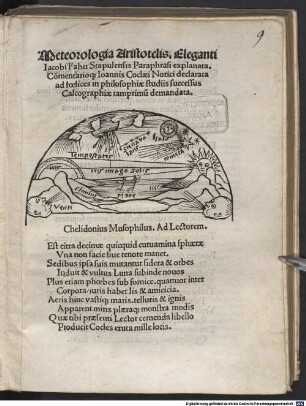 9
Meteorologia Aristotelis, Eleganti
Iacobi Fabri Stapulensis Paraphrasi explanata.
Cōmentarioq; Ioannis Coclæi Norici declarata
ad fœlices in philosophiæ studiis successus
Calcographiæ iamprimū demandata.
Tempestates
Iris imago Solis
Flumina
Mare
Venti
Chelidonius Musophilus. Ad Lectorem.
Est citra decimæ quicquid curuamina sphæræ
Vna non facie siue tenore manet.
Sedibus ipsa suis mutantur sidera & orbes
Induit & vultus Luna subinde nouos
Plus etiam phœbes sub fornice, quatuor inter
Corpora, iuris habet lis & amicicia.
Aeris hinc vastiq; maris, telluris & ignis
Apparent miris plæraq; monstra modis
Quæ tibi præsenti Lector cernenda libello
Producit Cocles eruta mille locis.